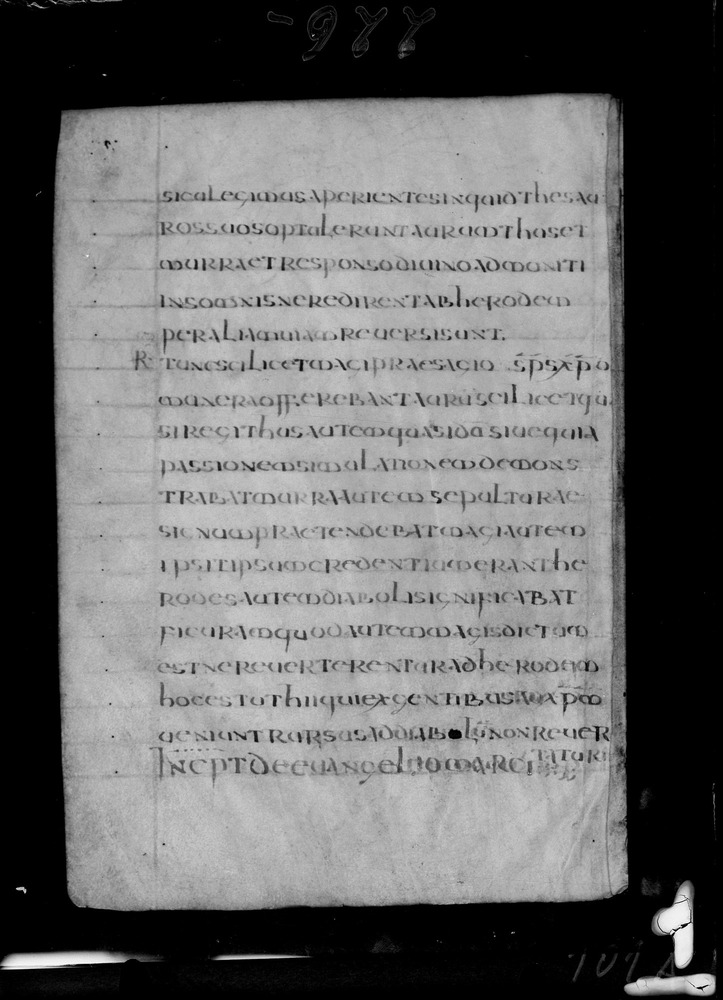 siculegimus aperientes inquid thesau
ros suos optulerunt aurum thus et
murra et responso diuino admoniti
in somnis ne redirent ab herodem
per alia uiam reuersi sunt.
R Tunc scilicet magi praesagio sps xpo
munera offerebant aurum scilicet qua
si regi thus autem quasi do siue quia
passionem simulationem demons
trabat murra autem sepulturae
signum praetendebat magi autem
ipsi tipsum credentium erant he
rodes autem diaboli significabat
figuram quod autem magis dictum
est ne reuerterentur ad herodem
hoc est ut hii qui ex gentibus ad xpm
ueniunt rursus ad diabolum non reuer
tatur
Incpt de euangelio marci